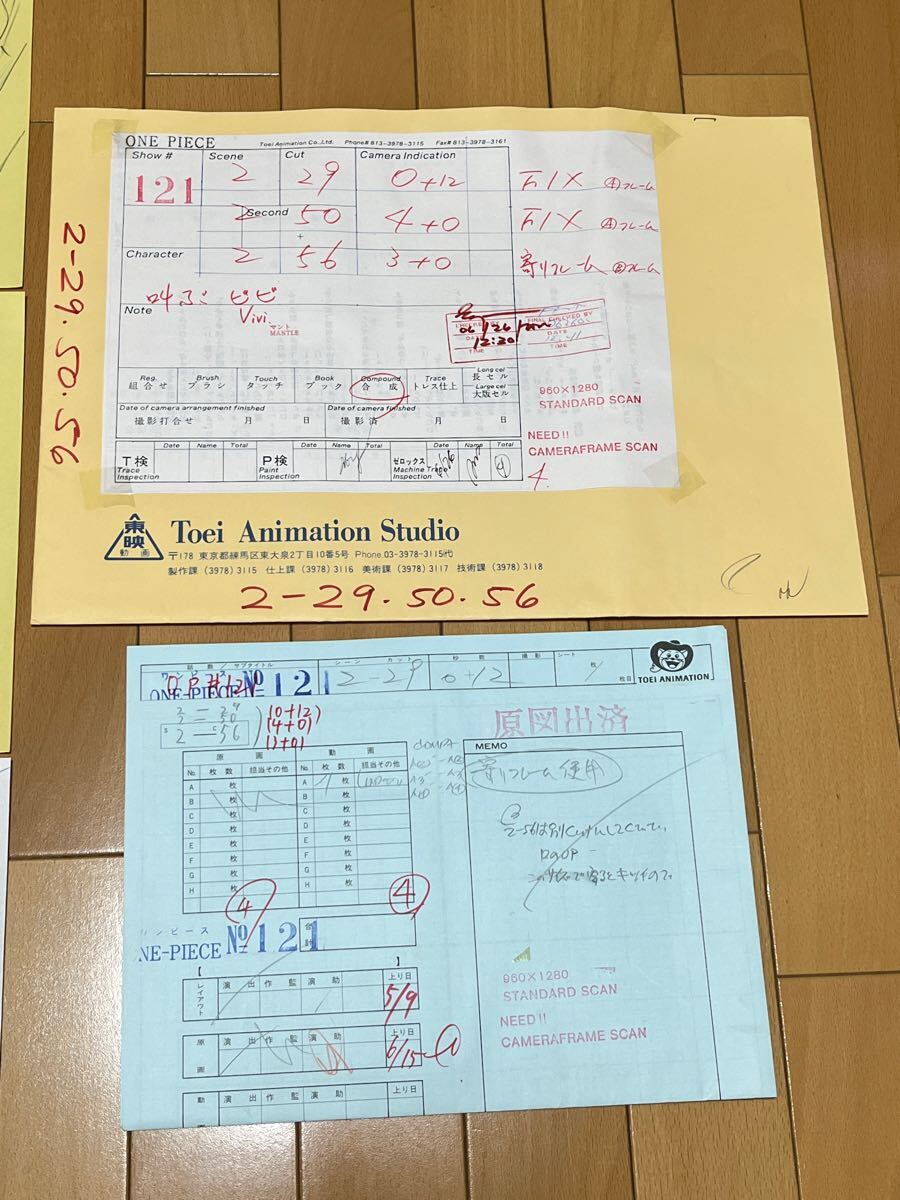 ONE PIECE Toei Animation Co.,Ltd. Phone# 813-3978-3115 Fax# 813-3978-3161
Show # Scene Cut Camera Indication
121 2 29 0+12 FIX Ⓐフレーム
Second 2 50 4+0 FIX Ⓐフレーム
Character 2 56 3+0 寄りフレーム Ⓑフレーム
叫ぶ ビビ
Vivi.
Note
マント
MANTLE
06/26
12:20
FINAL CHECKED BY
DATE
TIME
Reg. Brush Touch Book Compound Trace Long cel
組合せ ブラシ タッチ ブック 合成 トレス仕上 長セル
Large cel
大版セル
Date of camera arrangement finished Date of camera finished
撮影打合せ 月 日 撮影済 月 日
T検 Date Name Total P検 Date Name Total ゼロックス Date Name Total
Trace Inspection Paint Inspection Machine Trace Inspection
960×1280
STANDARD SCAN
NEED!!
CAMERAFRAME SCAN
4
2-29.50.56
東映
動画
Toei Animation Studio
〒178 東京都練馬区東大泉2丁目10番5号 Phone.03-3978-3115㈹
製作課 (3978) 3115 仕上課 (3978) 3116 美術課 (3978) 3117 技術課 (3978) 3118
2-29.50.56
話数/サブタイトル シーン カット 秒数 撮影 シート
ワンピース
ONE-PIECE №121
OP#121
2-29 0+12 1 枚 枚目
TOEI ANIMATION
2-29 (0+12)
2-50 (4+0)
S 2-C56 (3+0)
原図出済
原画 動画
No. 枚数 担当その他 No. 枚数 担当その他
A 枚 A 枚
B 枚 B 枚
C 枚 C 枚
D 枚 D 枚
E 枚 E 枚
F 枚 F 枚
G 枚 G 枚
H 枚 H 枚
④ ④
合計
MEMO
寄りフレーム使用
ワンピース
ONE-PIECE №121
レイアウト 演出 作監 演助 上り日
5/9
原画 演出 作監 演助 上り日
6/15
動 演出 作監 演助 上り日
960×1280
STANDARD SCAN
NEED!!
CAMERAFRAME SCAN